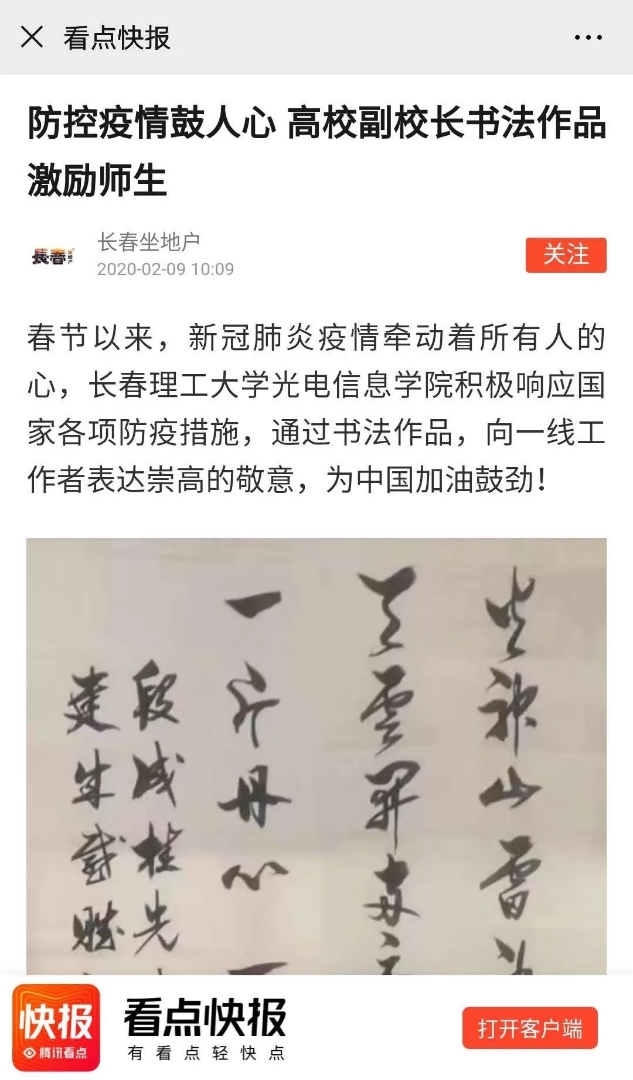 看点快报
防控疫情鼓人心 高校副校长书法作品
激励师生
长春坐地户
2020-02-09 10:09
关注
長春
春节以来，新冠肺炎疫情牵动着所有人的
心，长春理工大学光电信息学院积极响应国
家各项防疫措施，通过书法作品，向一线工
作者表达崇高的敬意，为中国加油鼓劲！
火神山雷
雲開
一片丹心一
段成桂先
建
快报
腾讯看点
看点快报
有看点轻快点
打开客户端